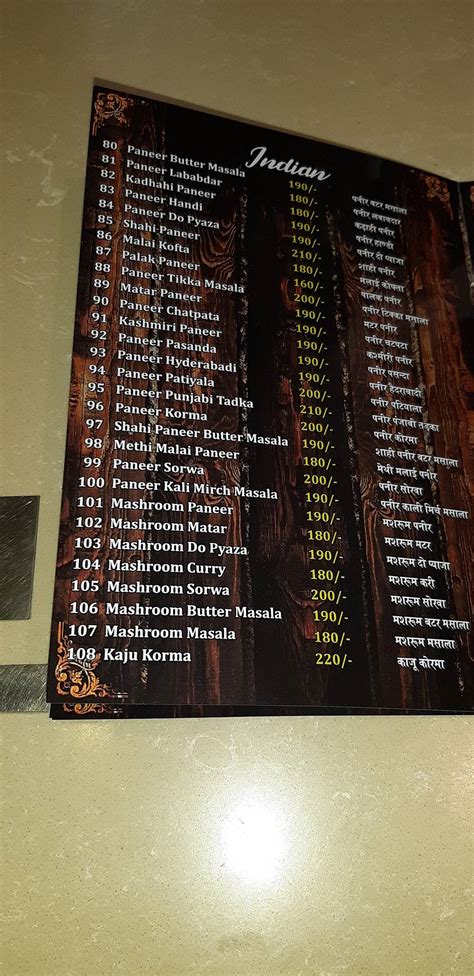 Indian
80 Paneer Butter Masala 190/- पनीर बटर मसाला
81 Paneer Lababdar 180/- पनीर लबाबदार
82 Kadhahi Paneer 180/- कढ़ाही पनीर
83 Paneer Handi 190/- पनीर हाण्डी
84 Paneer Do Pyaza 200/- पनीर दो प्याजा
85 Shahi Paneer 210/- शाही पनीर
86 Malai Kofta 180/- मलाई कोफ्ता
87 Palak Paneer 160/- पालक पनीर
88 Paneer Tikka Masala 200/- पनीर टिक्का मसाला
89 Matar Paneer 190/- मटर पनीर
90 Paneer Chatpata 190/- पनीर चटपटा
91 Kashmiri Paneer 190/- कश्मीरी पनीर
92 Paneer Pasanda 190/- पनीर पसन्दा
93 Paneer Hyderabadi 190/- पनीर हैदराबादी
94 Paneer Patiyala 200/- पनीर पटियाला
95 Paneer Punjabi Tadka 210/- पनीर पंजाबी तड़का
96 Paneer Korma 200/- पनीर कोरमा
97 Shahi Paneer Butter Masala 190/- शाही पनीर बटर मसाला
98 Methi Malai Paneer 180/- मेथी मलाई पनीर
99 Paneer Sorwa 200/- पनीर सोरवा
100 Paneer Kali Mirch Masala 190/- पनीर काली मिर्च मसाला
101 Mashroom Paneer 190/- मशरूम पनीर
102 Mashroom Matar 190/- मशरूम मटर
103 Mashroom Do Pyaza 190/- मशरूम दो प्याजा
104 Mashroom Curry 180/- मशरूम करी
105 Mashroom Sorwa 200/- मशरूम सोरवा
106 Mashroom Butter Masala 190/- मशरूम बटर मसाला
107 Mashroom Masala 180/- मशरूम मसाला
108 Kaju Korma 220/- काजू कोरमा